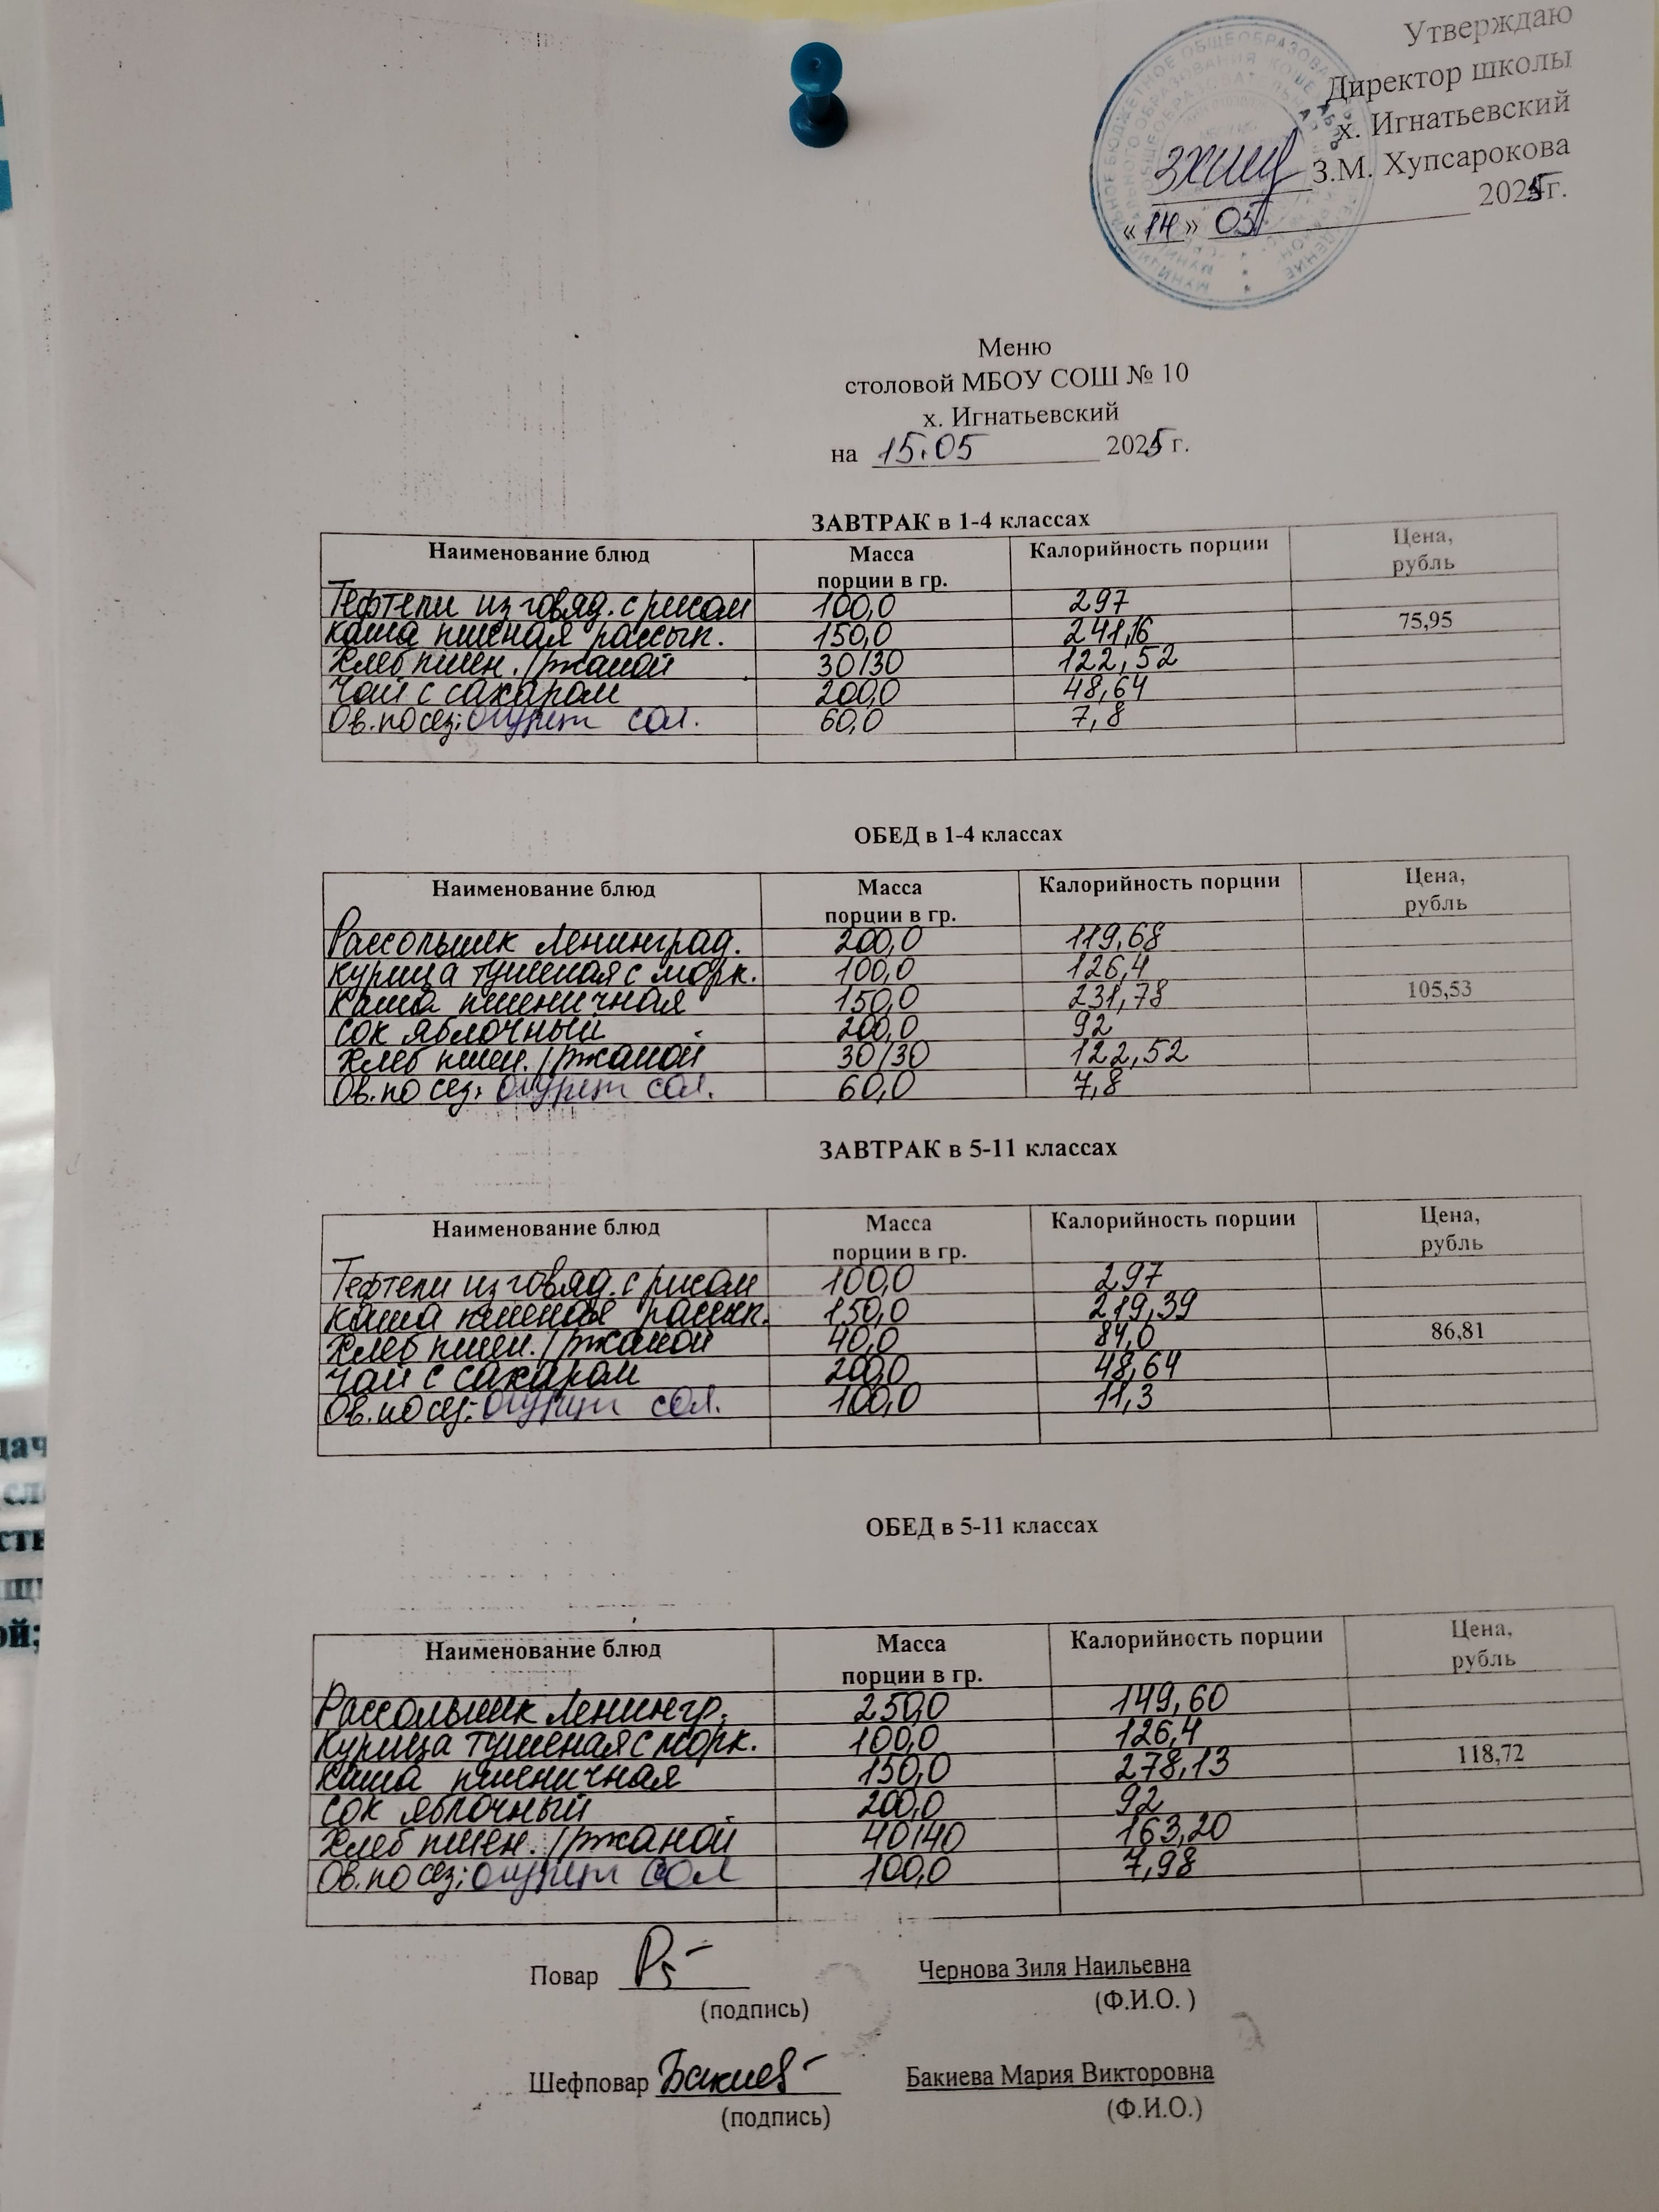 Утверждаю
Директор школы
х. Игнатьевский
З.М. Хупсарокова
«14» 05 2025г.
Меню
столовой МБОУ СОШ № 10
х. Игнатьевский
на 15.05 2025 г.
ЗАВТРАК в 1-4 классах
Наименование блюд Масса порции в гр. Калорийность порции Цена, рубль
Тефтели из говяд. с рисом 100,0 297
каша пшеная рассып. 150,0 241,16 75,95
Хлеб пшен./ржаной 30/30 122,52
Чай с сахаром 200,0 48,64
Ов. по сез: огурец сол. 60,0 7,8
ОБЕД в 1-4 классах
Наименование блюд Масса порции в гр. Калорийность порции Цена, рубль
Рассольник Ленинград. 200,0 119,68
курица тушеная с морк. 100,0 126,4
каша пшеничная 150,0 231,78 105,53
сок яблочный 200,0 92
Хлеб пшен./ржаной 30/30 122,52
Ов. по сез: огурец сол. 60,0 7,8
ЗАВТРАК в 5-11 классах
Наименование блюд Масса порции в гр. Калорийность порции Цена, рубль
Тефтели из говяд. с рисом 100,0 297
каша пшеная рассып. 150,0 219,39
Хлеб пшен./ржаной 40,0 84,0 86,81
Чай с сахаром 200,0 48,64
Ов. по сез: огурец сол. 100,0 11,3
ОБЕД в 5-11 классах
Наименование блюд Масса порции в гр. Калорийность порции Цена, рубль
Рассольник Ленингр. 250,0 149,60
Курица тушеная с морк. 100,0 126,4
каша пшеничная 150,0 278,13 118,72
сок яблочный 200,0 92
Хлеб пшен./ржаной 40/40 163,20
Ов. по сез: огурец сол 100,0 7,98
Повар Чернова Зиля Наильевна
(подпись) (Ф.И.О. )
Шефповар Бакиев Бакиева Мария Викторовна
(подпись) (Ф.И.О.)